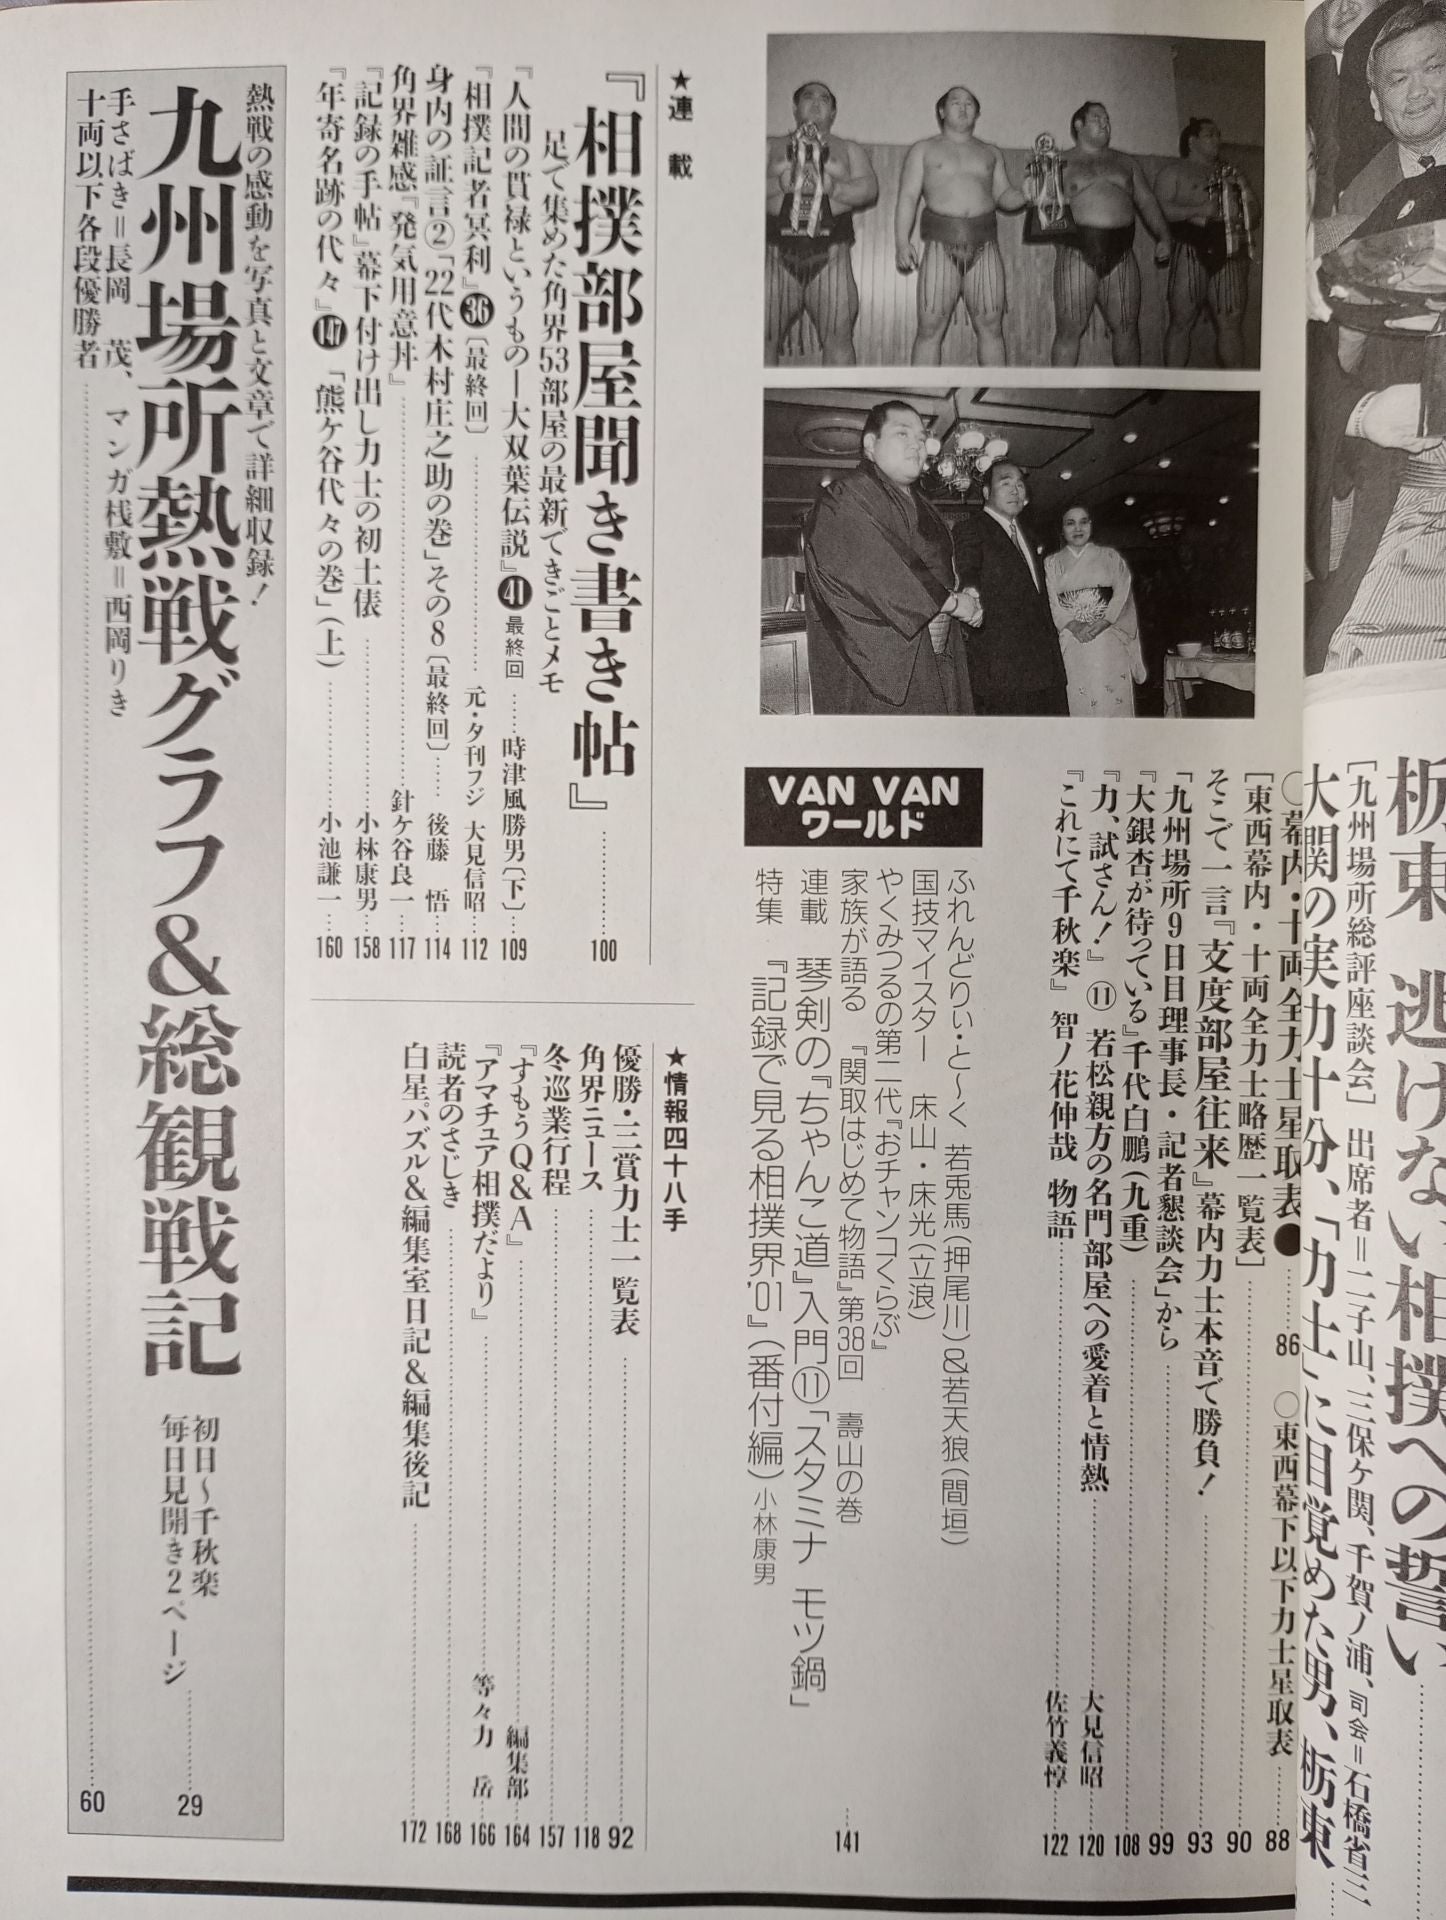 栃東 逃げない相撲への誓い
［九州場所総評座談会］ 出席者＝二子山、三保ケ関、千賀ノ浦、司会＝石橋省三
大関の実力十分、「力士」に目覚めた男、栃東
○幕内・十両全力士星取表●……86 ○東西幕下以下力士星取表……88
［東西幕内・十両全力士略歴一覧表］……90
そこで一言『支度部屋往来』幕内力士本音で勝負！……93
「九州場所9日目理事長・記者懇談会」から……99
『大銀杏が待っている』千代白鵬（九重）……108
『力、試さん！』⑪ 若松親方の名門部屋への愛着と情熱……大見信昭……120
『これにて千秋楽』 智ノ花伸哉 物語……佐竹義惇……122
VAN VAN
ワールド
ふれんどりぃ・と～く 若兎馬（押尾川）＆若天狼（間垣）
国技マイスター 床山・床光（立浪）
やくみつるの第二代『おチャンコくらぶ』
家族が語る 『関取はじめて物語』第38回 壽山の巻……141
連載 琴剣の『ちゃんこ道』入門⑪「スタミナ モツ鍋」
特集 『記録で見る相撲界'01』（番付編）小林康男
★連 載
『相撲部屋聞き書き帖』……100
足で集めた角界53部屋の最新できごとメモ
『人間の貫禄というもの―大双葉伝説』㊶最終回……時津風勝男〔下〕……109
『相撲記者冥利』㊱〔最終回〕……元・夕刊フジ 大見信昭……112
身内の証言②「22代木村庄之助の巻」その8〔最終回〕……後藤 悟……114
角界雑感『発気用意丼』……針ケ谷良一……117
『記録の手帖』幕下付け出し力士の初土俵……小林康男……158
『年寄名跡の代々』147「熊ケ谷代々の巻」（上）……小池謙一……160
★情報四十八手
優勝・三賞力士一覧表……92
角界ニュース……118
冬巡業行程……157
『すもうQ＆A』……編集部……164
『アマチュア相撲だより』……等々力 岳……166
読者のさじき……168
白星パズル＆編集室日記＆編集後記……172
熱戦の感動を写真と文章で詳細収録！
九州場所熱戦グラフ＆総観戦記
初日～千秋楽
毎日見開き2ページ……29
手さばき＝長岡 茂、マンガ桟敷＝西岡りき
十両以下各段優勝者……60